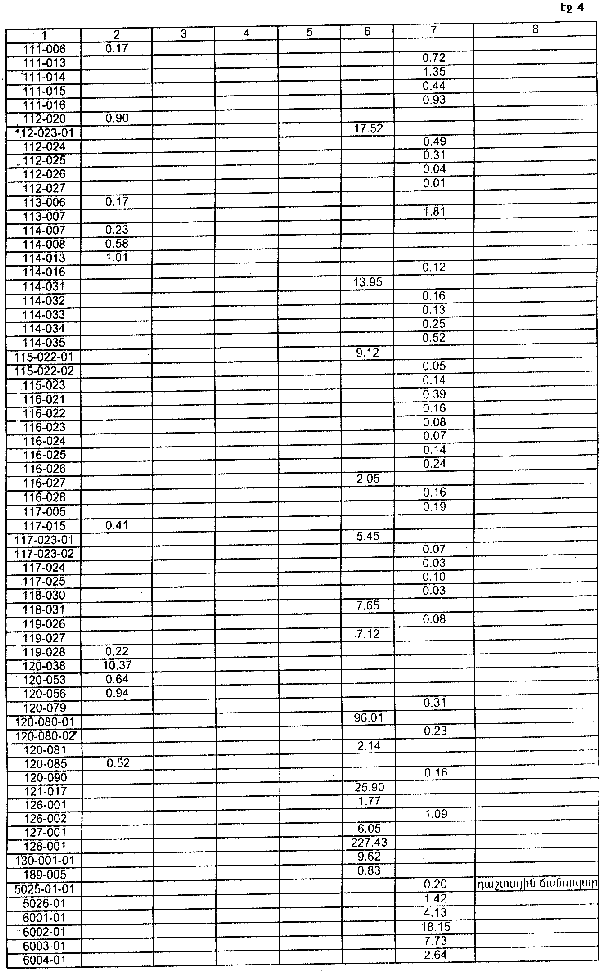 էջ 4
1 2 3 4 5 6 7 8
111-006 0.17
111-013 0.72
111-014 1.35
111-015 0.44
111-016 0.93
112-020 0.90
112-023-01 17.52
112-024 0.49
112-025 0.31
112-026 0.04
112-027 0.01
113-006 0.17
113-007 1.81
114-007 0.23
114-008 0.58
114-013 1.01
114-016 0.12
114-031 13.95
114-032 0.16
114-033 0.13
114-034 0.25
114-035 0.52
115-022-01 9.12
115-022-02 0.05
115-023 0.14
116-021 0.39
116-022 0.16
116-023 0.08
116-024 0.07
116-025 0.14
116-026 0.24
116-027 2.05
116-028 0.16
117-005 0.19
117-015 0.41
117-023-01 5.45
117-023-02 0.07
117-024 0.03
117-025 0.10
118-030 0.03
118-031 7.65
119-026 0.08
119-027 7.12
119-028 0.22
120-038 10.37
120-053 0.64
120-056 0.94
120-079 0.31
120-080-01 96.01
120-080-02 0.23
120-081 2.14
120-085 0.52
120-090 0.16
121-017 25.90
126-001 1.77
126-002 1.09
127-001 6.05
128-001 227.43
130-001-01 9.62
189-005 0.83
5025-01-01 0.20 դաշտային ճանապարհ
5026-01 1.42
6001-01 4.13
6002-01 18.15
6003-01 7.73
6004-01 2.64